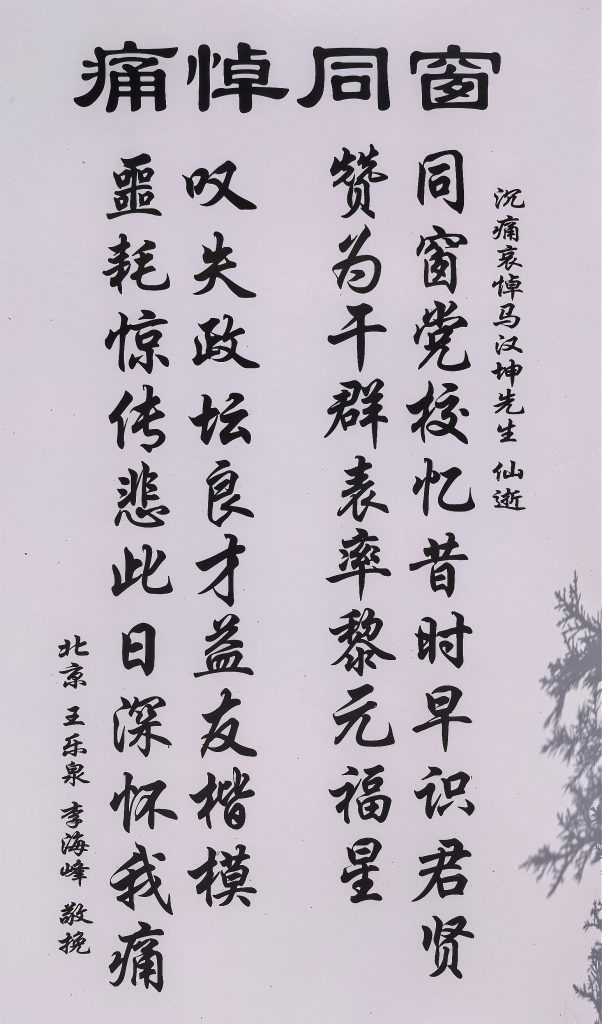 窗同悼痛
沉痛哀悼马汉坤先生 仙逝
同窗党校忆昔时早识君贤
赞为干群表率黎元福星
噩耗惊传悲此日深怀我痛
叹失政坛良才益友楷模
北京 王乐泉 李海峰 敬挽